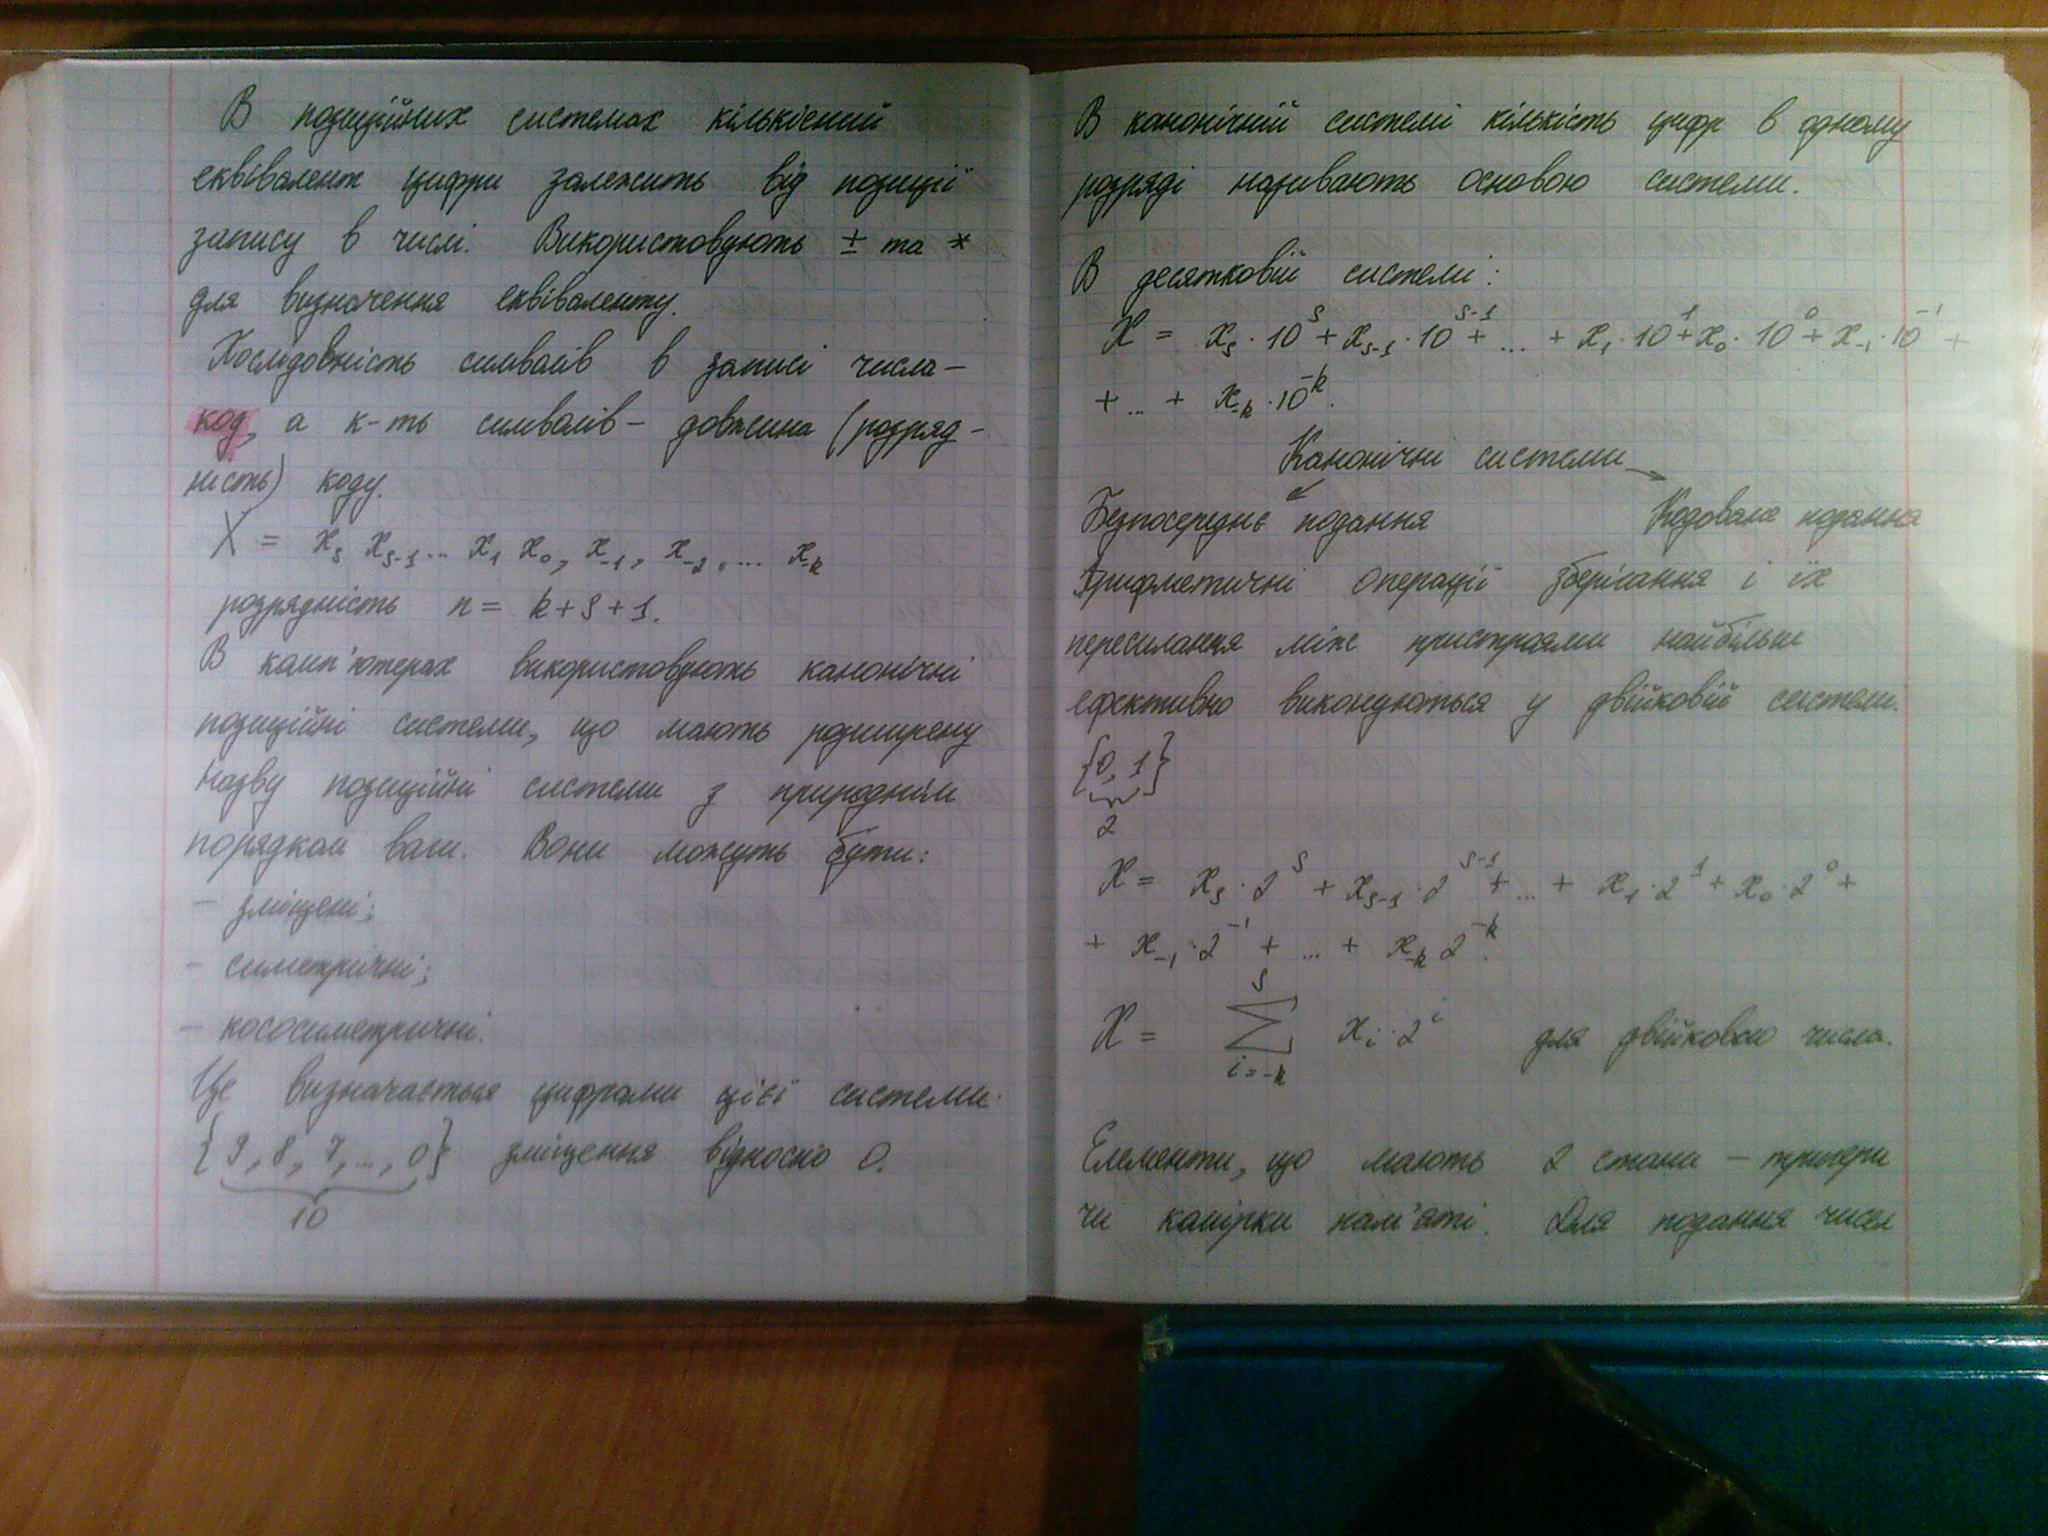 В позиційних системах кількісний
еквівалент цифри залежить від позиції
запису в числі. Використовують ± та *
для визначення еквіваленту.
Послідовність символів в записі числа –
код, а к-ть символів – довжина (розряд-
ність) коду.
X = x_s x_{s-1} ... x_1 x_0, x_{-1}, x_{-2}, ... x_{-k}
розрядність n = k+s+1.
В комп'ютерах використовують канонічні
позиційні системи, що мають розширену
назву позиційні системи з природнім
порядком ваги. Вони можуть бути:
– зміщені;
– симетричні;
– кососиметричні.
Це визначається цифрами цієї системи.
{9, 8, 7, ..., 0} зміщення відносно 0.
10
В канонічній системі кількість цифр в одному
розряді називають основою системи.
В десятковій системі:
X = x_s · 10^s + x_{s-1} · 10^{s-1} + ... + x_1 · 10^1 + x_0 · 10^0 + x_{-1} · 10^{-1} +
+ ... + x_{-k} · 10^{-k}.
Канонічні системи
Безпосереднє подання Кодована подання
Арифметичні операції зберігання і їх
пересилання між пристроями найбільш
ефективно виконуються у двійковій системі.
{0, 1}
2
X = x_s · 2^s + x_{s-1} · 2^{s-1} + ... + x_1 · 2^1 + x_0 · 2^0 +
+ x_{-1} · 2^{-1} + ... + x_{-k} 2^{-k}.
X = ∑_{i=-k}^{s} x_i · 2^i для двійкового числа.
Елементи, що мають 2 стани – тригери
чи комірки пам'яті. Для подання чисел